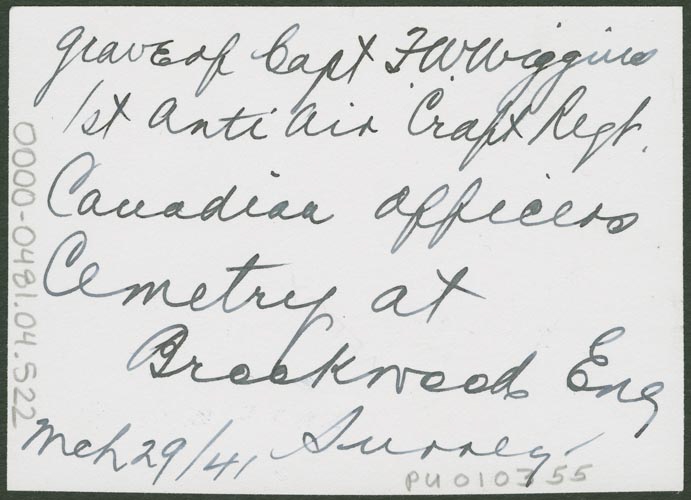 Grave of Capt F.W. Wiggins
1st Anti Air Craft Regt.
Canadian Officers
Cemetry at
Brookwood Eng
Mch 29/41, Surrey
0000-0481.04.522
PU010355